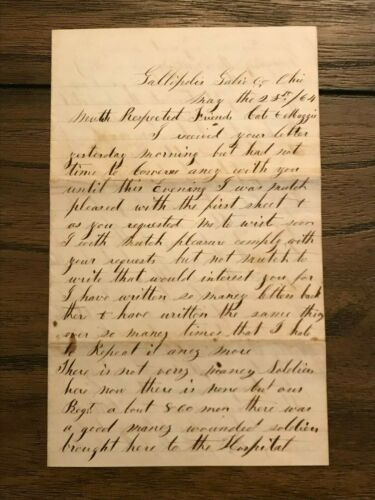 Gallipolis Galia Co Ohio
May the 25th/64
Much Respected Friends Cate & Maggie
I received your letter
yesterday morning but had not
time to converse aney with you
until this Evening I was mutch
pleased with the first sheet &
as you requested me to write soon
I with mutch pleasure comply with
your request but not mutch to
write that would interest you for
I have written so maney letters back
ther & have written the same thing
over so maney times that I hate
to Repeat it aney more
There is not very maney Soldiers
here now there is none but our
Regt a bout 800 men there was
a good maney wounded soldiers
brought here to the Hospital